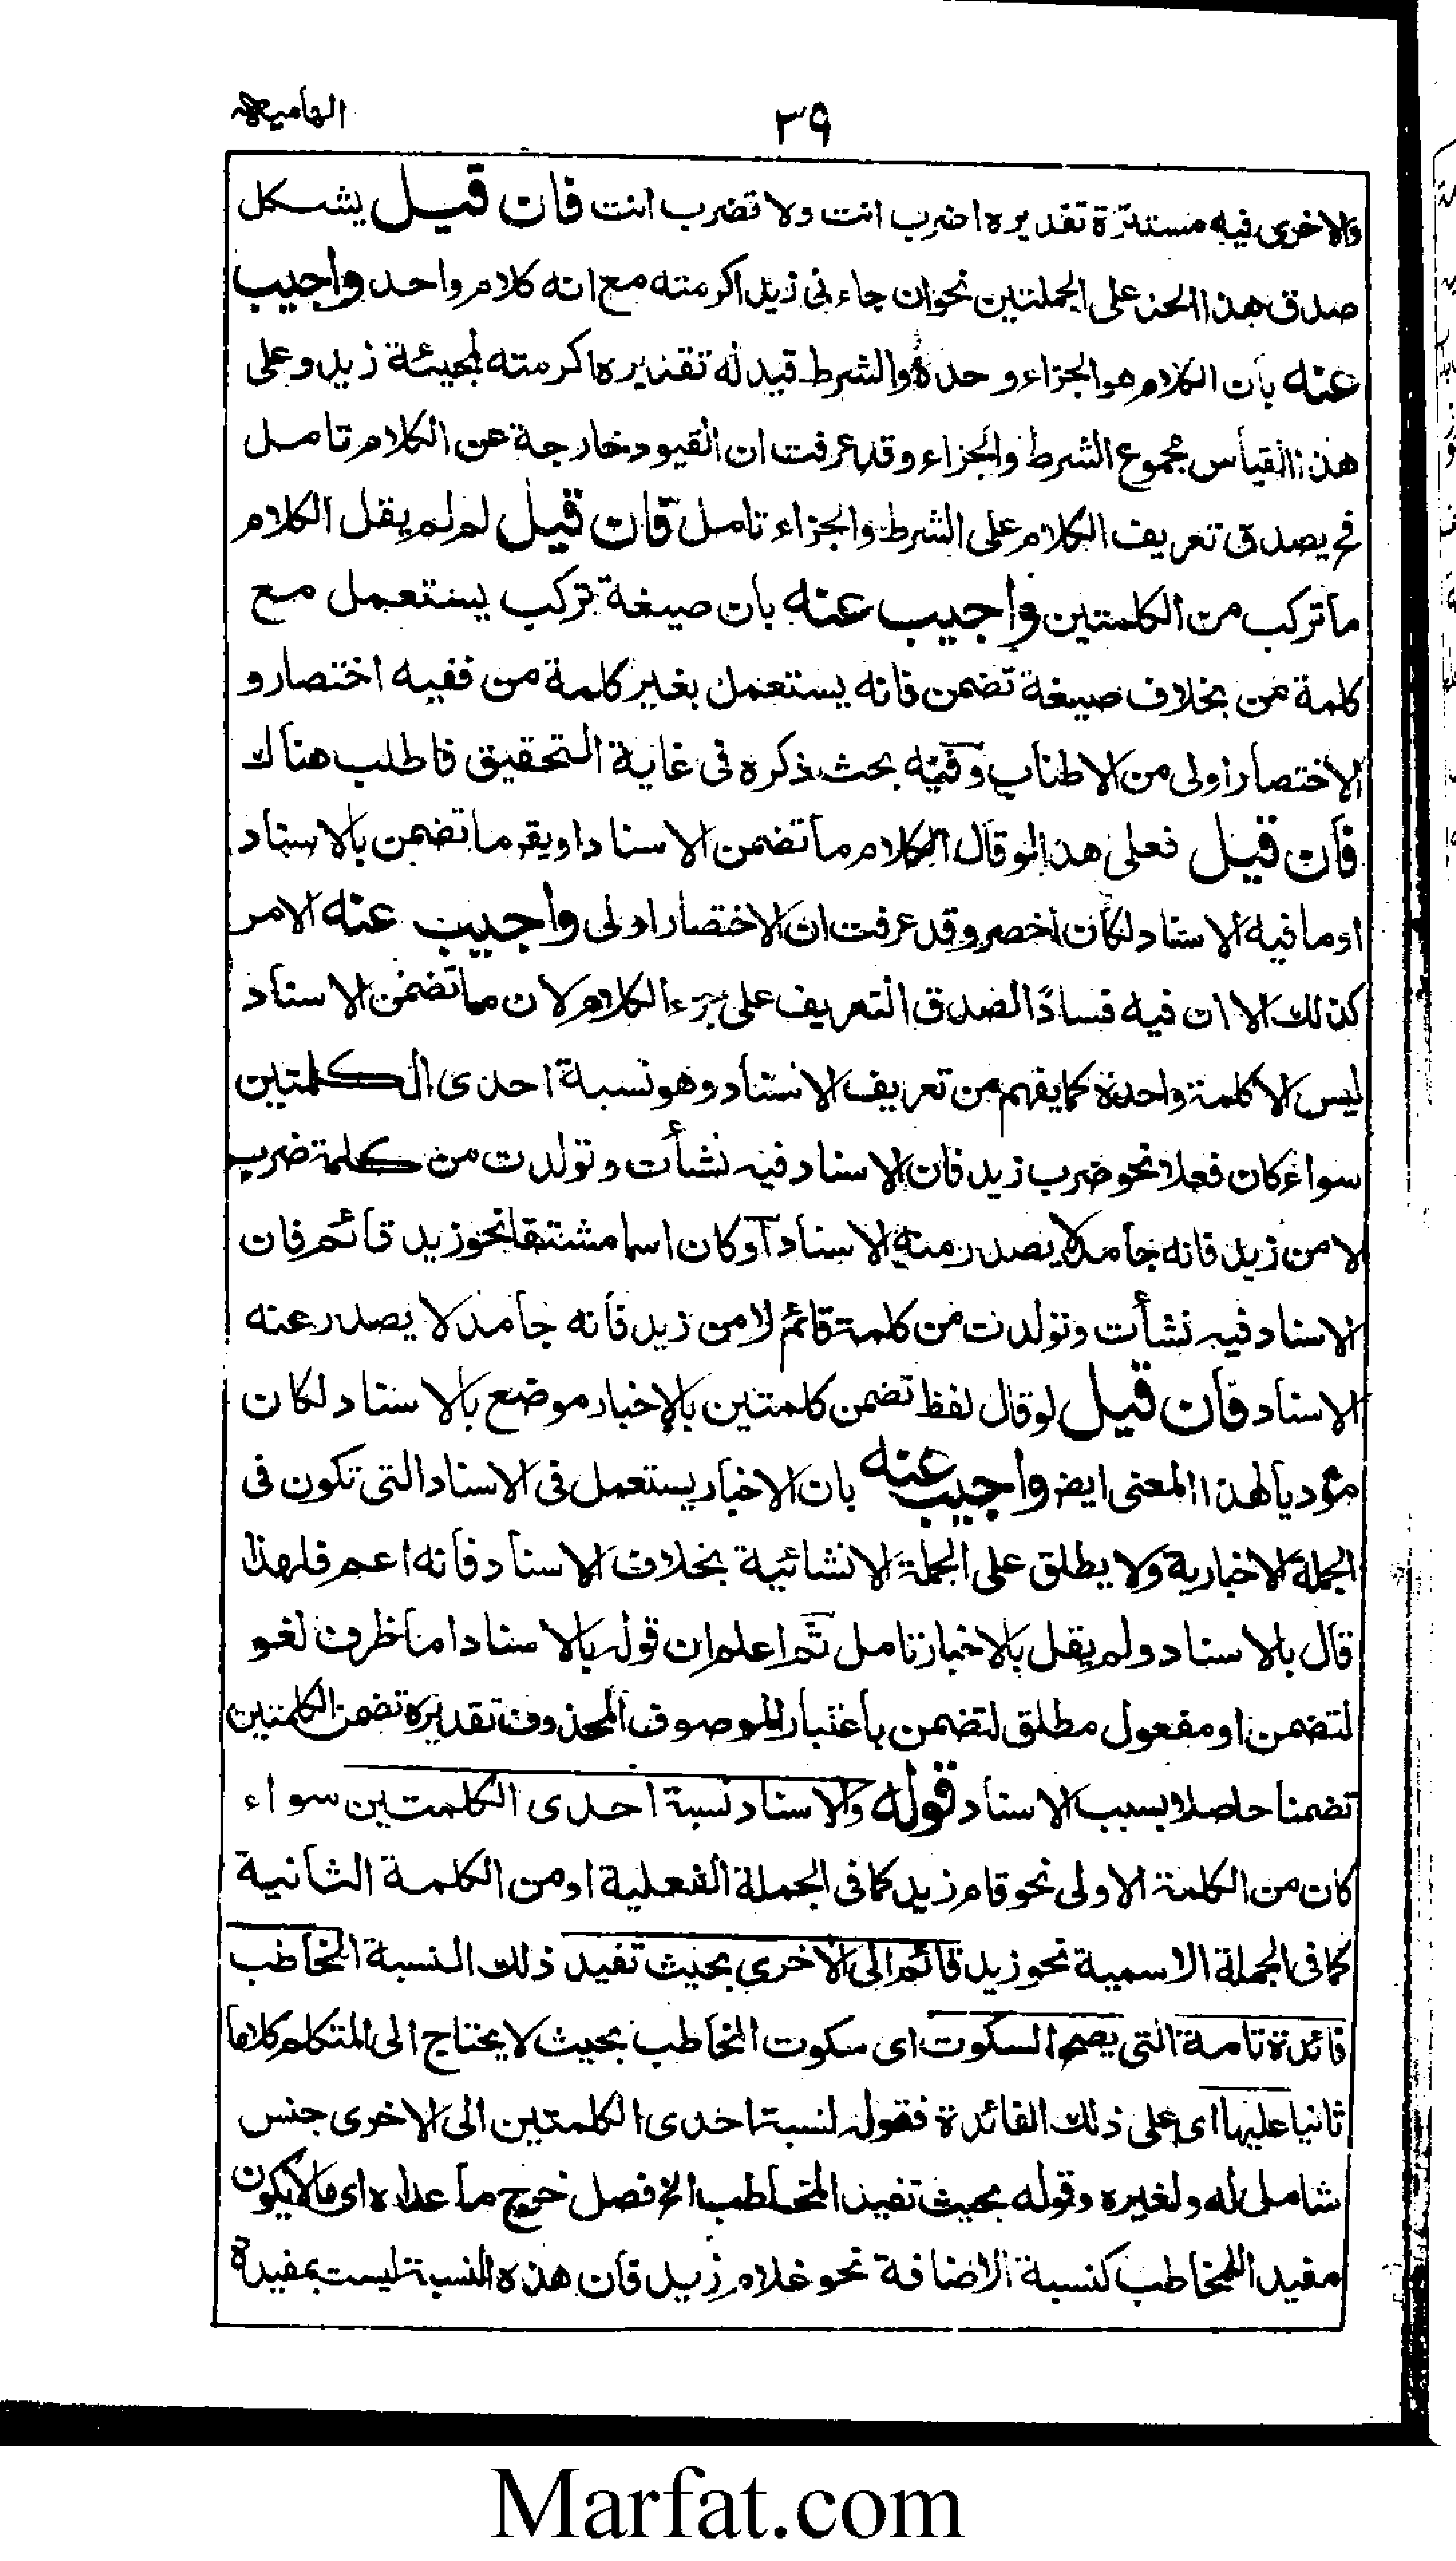 الهاميه
٣٩
والاخرى فيه مستترة تقديره اضرب انت ولا تضرب انت فان قيل يشكل
صدق هذا الحد على الجملتين نحو ان جاءنى زيد اكرمته مع انه كلام واحد واجيب
عنه بان الكلام هو الجزاء وحده والشرط قيد له تقديره اكرمته لمجيئة زيد وعلى
هذا القياس مجموع الشرط والجزاء وقد عرفت ان القيود خارجة عن الكلام تامل
فح يصدق تعريف الكلام على الشرط والجزاء تامل فان قيل لم لم يقل الكلام
ما تركب من الكلمتين واجيب عنه بان صيغة تركب يستعمل مع
كلمة من بخلاف صيغة تضمن فانه يستعمل بغير كلمة من ففيه اختصار و
الاختصار اولى من الاطناب وفيه بحث ذكره فى غاية التحقيق فاطلب هناك
فان قيل فعلى هذا لو قال الكلام ما تضمن الاسناد او يقر ما تضمن بالاسناد
او ما فيه الاسناد لكان اخصر وقد عرفت ان الاختصار اولى واجيب عنه الامر
كذلك الا ان فيه فسادًا لصدق التعريف على جزء الكلام لان ما تضمن الاسناد
ليس الا كلمة واحدة كما يفهم من تعريف الاسناد وهو نسبة احدى الكلمتين
سواء كان فعلا نحو ضرب زيد فان الاسناد فيه نشأت وتولدت من كلمة ضرب
لا من زيد فانه جامد لا يصدر منه الاسناد او كان اسما مشتقا نحو زيد قائم فان
الاسناد فيه نشأت وتولدت من كلمة قائم لا من زيد فانه جامد لا يصدر عنه
الاسناد فان قيل لو قال لفظ تضمن كلمتين بالاخبار موضع بالاسناد لكان
مؤديا لهذا المعنى ايضر واجيب عنه بان الاخبار يستعمل فى الاسناد التى تكون فى
الجملة الاخبارية ولا يطلق على الجملة الانشائية بخلاف الاسناد فانه اعم فلهذا
قال بالاسناد ولم يقل بالاخبار تامل ثم اعلم ان قوله بالاسناد اما ظرف لغو
لتضمن او مفعول مطلق لتضمن باعتبار الموصوف المحذوف تقديره تضمن الكلمتين
تضمنا حاصلا بسبب الاسناد قوله والاسناد نسبة احدى الكلمتين سواء
كان من الكلمة الاولى نحو قام زيد كما فى الجملة الفعلية او من الكلمة الثانية
كما فى الجملة الاسمية نحو زيد قائم الى الاخرى بحيث تفيد ذلك النسبة المخاطب
فائدة تامة التى يصح السكوت اى سكوت المخاطب بحيث لا يحتاج الى المتكلم كلاما
ثانيا عليها اى على ذلك الفائدة فقوله نسبة احدى الكلمتين الى الاخرى جنس
شامل له ولغيره وقوله بحيث تفيد المخاطب الخ فصل خرج ما عداه اى ما لا يكون
مفيدا للمخاطب كنسبة الاضافة نحو غلام زيد فان هذه النسبة ليست بمفيدة
Marfat.com